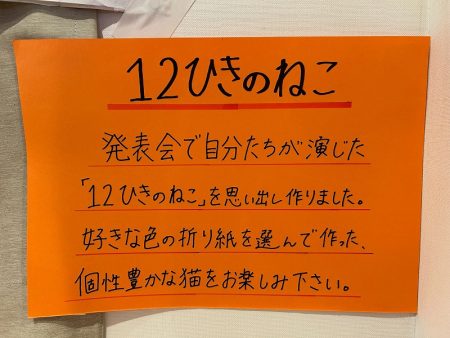 12ひきのねこ
発表会で自分たちが演じた
「12ひきのねこ」を思い出し作りました。
好きな色の折り紙を選んで作った、
個性豊かな猫をお楽しみ下さい。